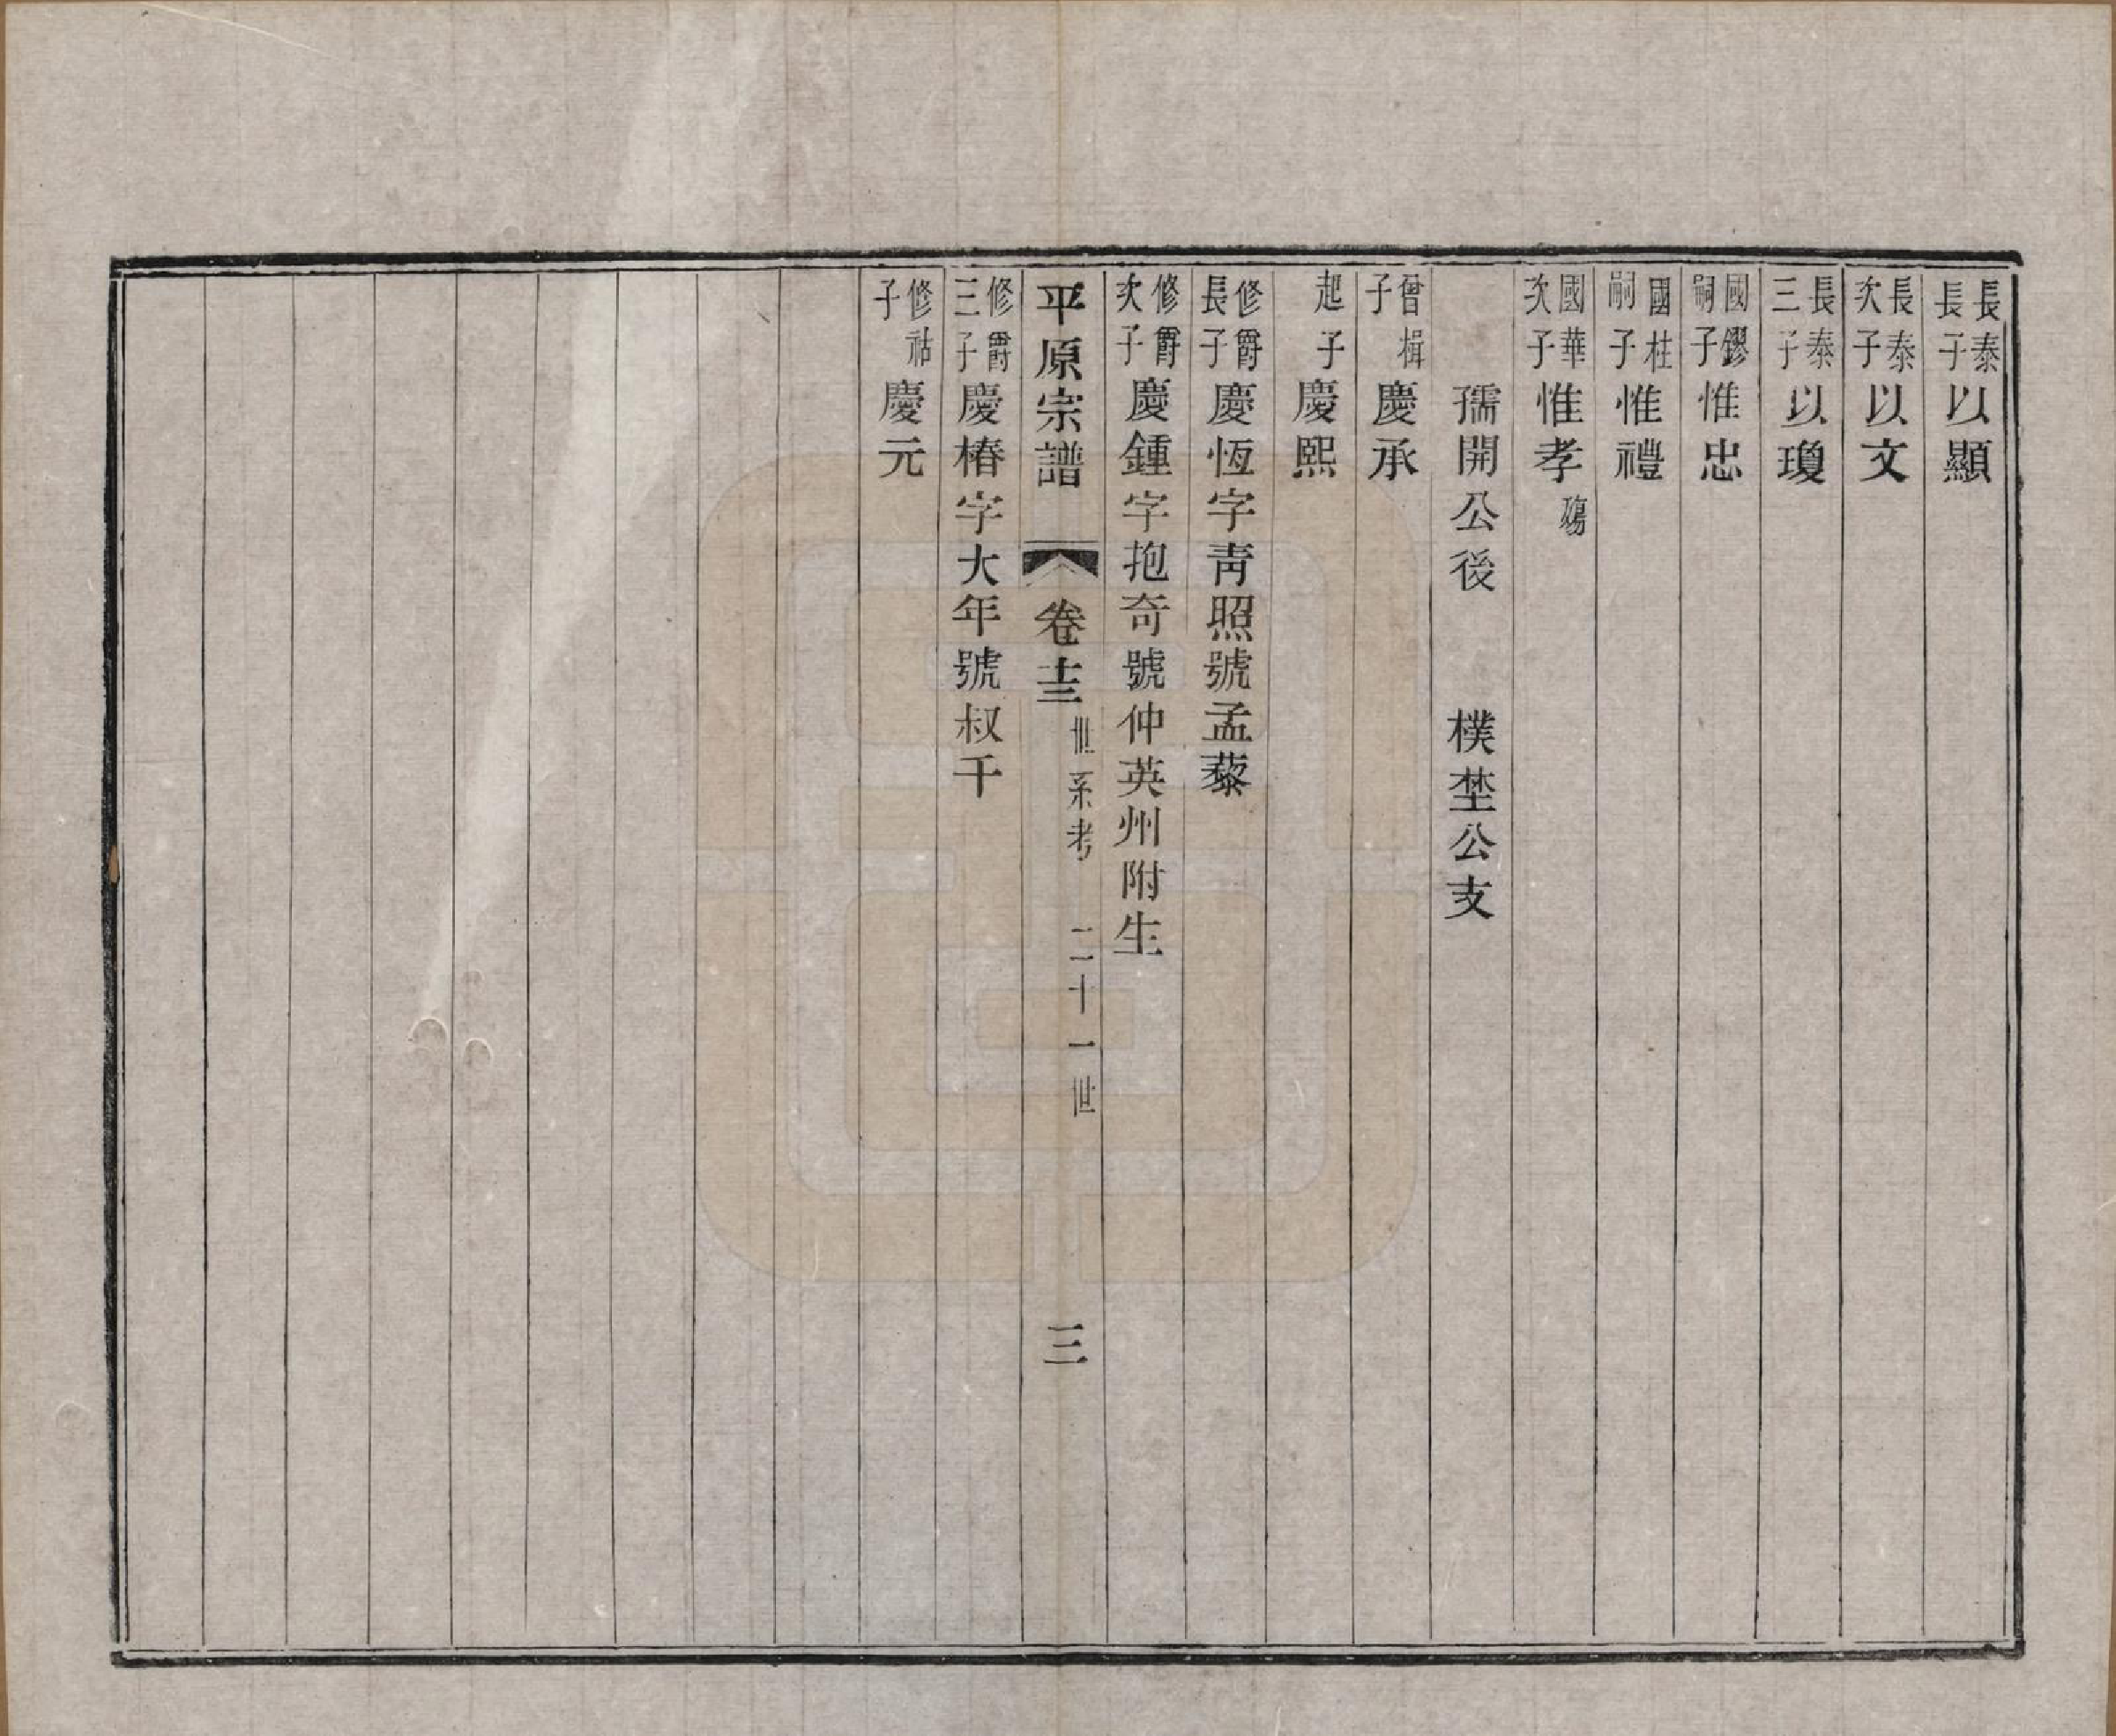 長泰長子以顯
長泰次子以文
長泰三子以瓊
國鏐嗣子惟忠
國柱嗣子惟禮
國華次子惟孝殤
孺開公後　樸埜公支
曾楫子慶承
起子慶熙
修爵長子慶恆字靑照號孟藜
修爵次子慶鍾字抱奇號仲英州附生
平原宗譜　卷十三　世系考　二十一世　三
修爵三子慶椿字大年號叔千
修祜子慶元